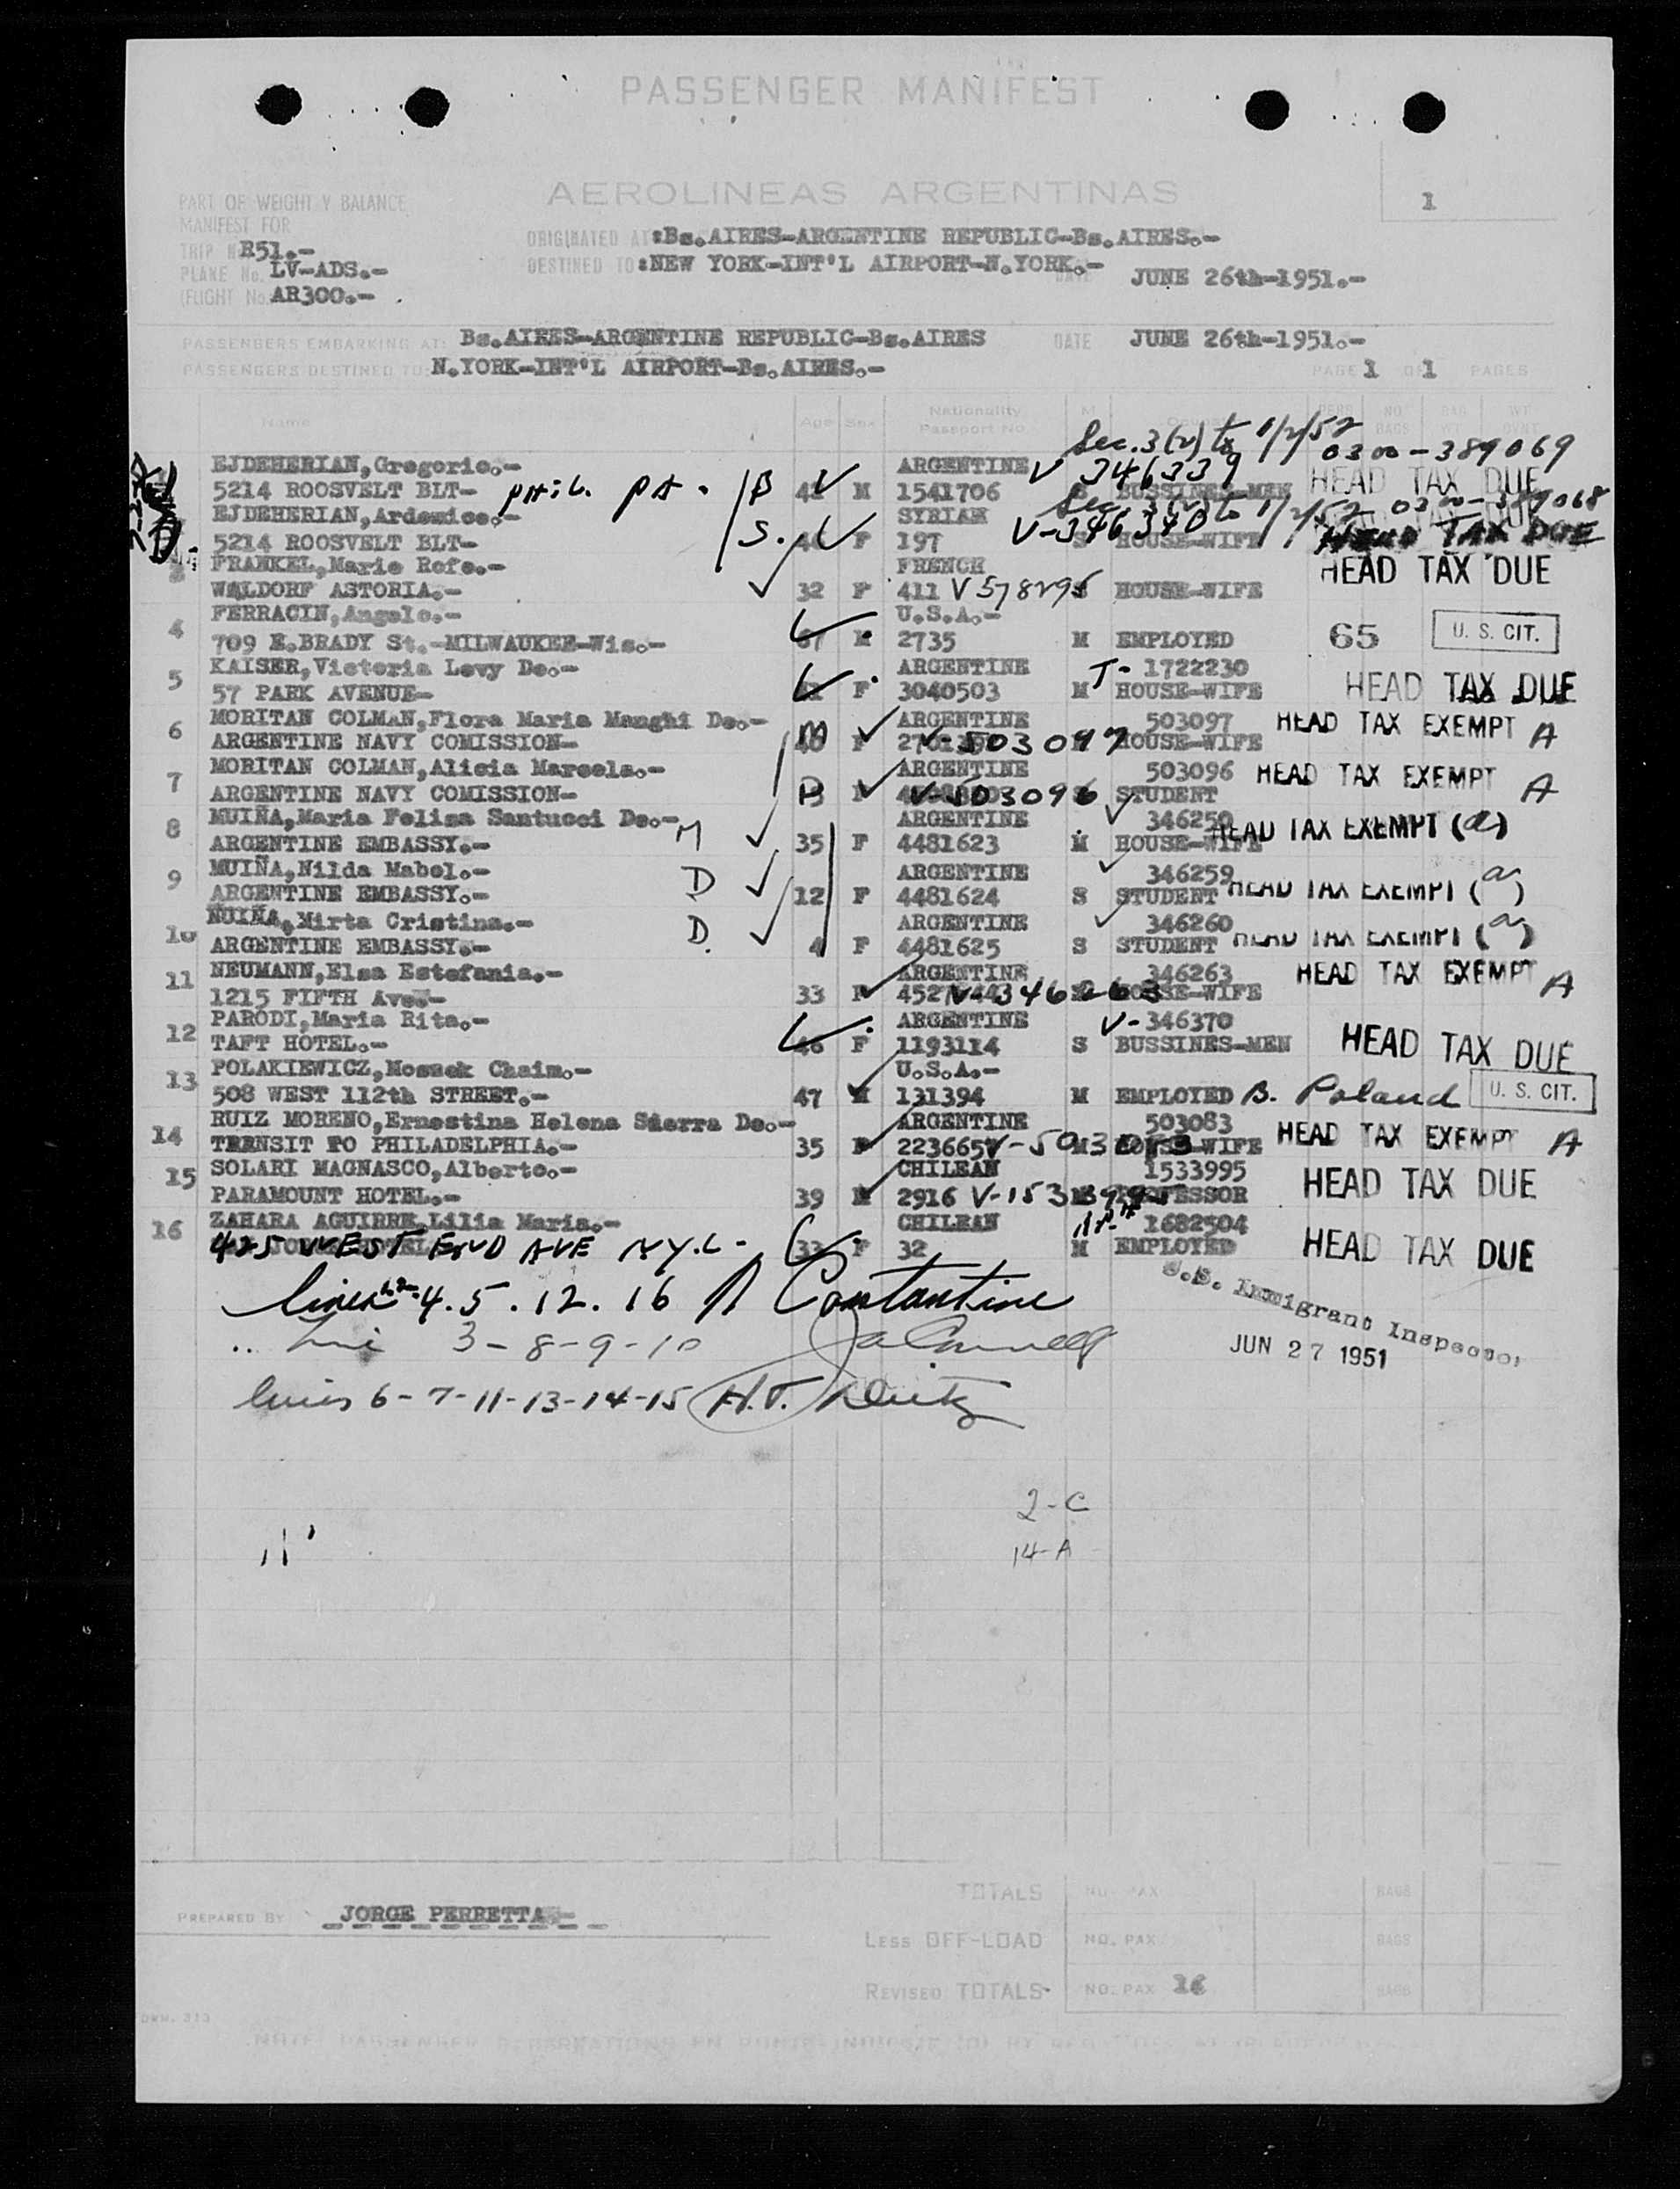 PASSENGER MANIFEST
AEROLINEAS ARGENTINAS
1
PART OF WEIGHT Y BALANCE
MANIFEST FOR
TRIP No. R51.-
PLANE No. LV-ADS.-
(FLIGHT No. AR300.-
ORIGINATED AT :Bs.AIRES-ARGENTINE REPUBLIC-Bs.AIRES.-
DESTINED TO :NEW YORK-INT'L AIRPORT-N.YORK.-
DATE JUNE 26th-1951.-
PASSENGERS EMBARKING AT: Bs.AIRES-ARGENTINE REPUBLIC-Bs.AIRES DATE JUNE 26th-1951.-
PASSENGERS DESTINED TO: N.YORK-INT'L AIRPORT-Bs.AIRES.-
PAGE 1 OF 1 PAGES
Name Age Sex Nationality Passport No. M
NO BAGS
Sec. 3(2) to 1/2/52 0300-389069
EJDEHERIAN,Gregorio.- ARGENTINE V 346339 HEAD TAX DUE
5214 ROOSVELT BLT- PHIL. PA. M 1541706 BUSSINES-MEN
Sec. 3(2) to 1/2/52 0300-389068
EJDEHERIAN, SYRIAN V-346340 HEAD TAX DUE
5214 ROOSVELT BLT- S. F 197 S HOUSE-WIFE
3 FRANKEL,Marie Rofe.- FRENCH HEAD TAX DUE
WALDORF ASTORIA.- 32 F 411 HOUSE-WIFE
4 FERRACIN,Angelo.- U.S.A.- 65 U. S. CIT.
709 E.BRADY St.-MILWAUKEE-Wis.- M 2735 M EMPLOYED
5 KAISER,Victoria Levy De.- ARGENTINE T- 1722230
57 PARK AVENUE- F 3040503 M HOUSE-WIFE HEAD TAX DUE
6 MORITAN COLMAN,Flora Maria Manghi De.- M ARGENTINE 503097 HEAD TAX EXEMPT A
ARGENTINE NAVY COMISSION- F V-503097 HOUSE-WIFE
7 MORITAN COLMAN,Alicia Marcela.- ARGENTINE 503096 HEAD TAX EXEMPT A
ARGENTINE NAVY COMISSION- V-503096 STUDENT
8 MUIÑA,Maria Felisa Santucci De.- M ARGENTINE 346250 HEAD TAX EXEMPT (a)
ARGENTINE EMBASSY.- 35 F 4481623 M HOUSE-WIFE
9 MUIÑA,Nilda Mabel.- D ARGENTINE 346259
ARGENTINE EMBASSY.- 12 F 4481624 S STUDENT HEAD TAX EXEMPT (a)
10 MUIÑA,Mirta Cristina.- D. ARGENTINE 346260
ARGENTINE EMBASSY.- 4 F 4481625 S STUDENT HEAD TAX EXEMPT (a)
11 NEUMANN,Elsa Estefania.- ARGENTINE 346263 HEAD TAX EXEMPT A
1215 FIFTH Ave.- 33 F V-346263 HOUSE-WIFE
12 PARODI,Maria Rita.- ARGENTINE V-346370
TAFT HOTEL.- 46 F 1193114 S BUSSINES-MEN HEAD TAX DUE
13 POLAKIEWICZ,Moszek Chaim.- U.S.A.- U. S. CIT.
508 WEST 112th STREET.- 47 M 131394 M EMPLOYED B. Poland
14 RUIZ MORENO,Ernestina Helena Sierra De.- ARGENTINE 503083 HEAD TAX EXEMPT A
TRANSIT TO PHILADELPHIA.- 35 F 2236657 V-503083 HOUSE-WIFE
15 SOLARI MAGNASCO,Alberto.- CHILEAN 1533995 HEAD TAX DUE
PARAMOUNT HOTEL.- 39 M 2916 V-1533995 PROFESSOR
16 ZAHARA AGUIRRE,Lilia Maria.- CHILEAN 1682504
425 WEST END AVE N.Y.C- 33 F 32 M EMPLOYED HEAD TAX DUE
lines 1.2.4.5.12.16 Constantine
U.S. Immigrant Inspector
JUN 27 1951
3-8-9-10
lines 6-7-11-13-14-15 H.J.
2-C
14-A
PREPARED BY JORGE PERRETTA
TOTALS NO. PAX BAGS
LESS OFF-LOAD NO. PAX BAGS
REVISED TOTALS- NO. PAX 16 BAGS